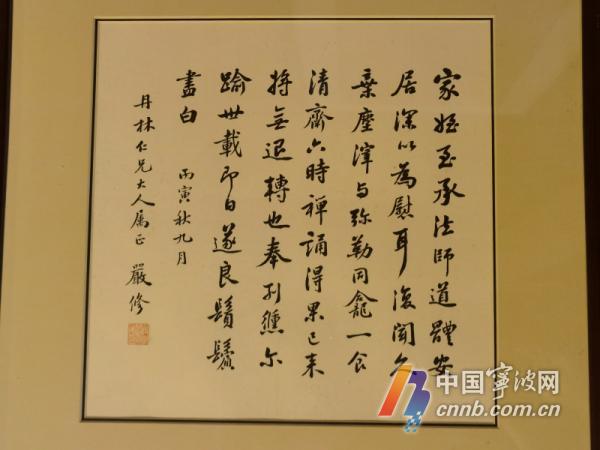 家姪至承法師道體安
居深以為慰耳復聞久
棄塵滓与弥勒同龕一食
清齋六時禅誦得果已来
将無退轉也奉别儵尔
踰卅載即日遂良鬚鬢
盡白 丙寅秋九月
丹林仁兄大人属正 嚴修
中国寧波网
cnnb.com.cn